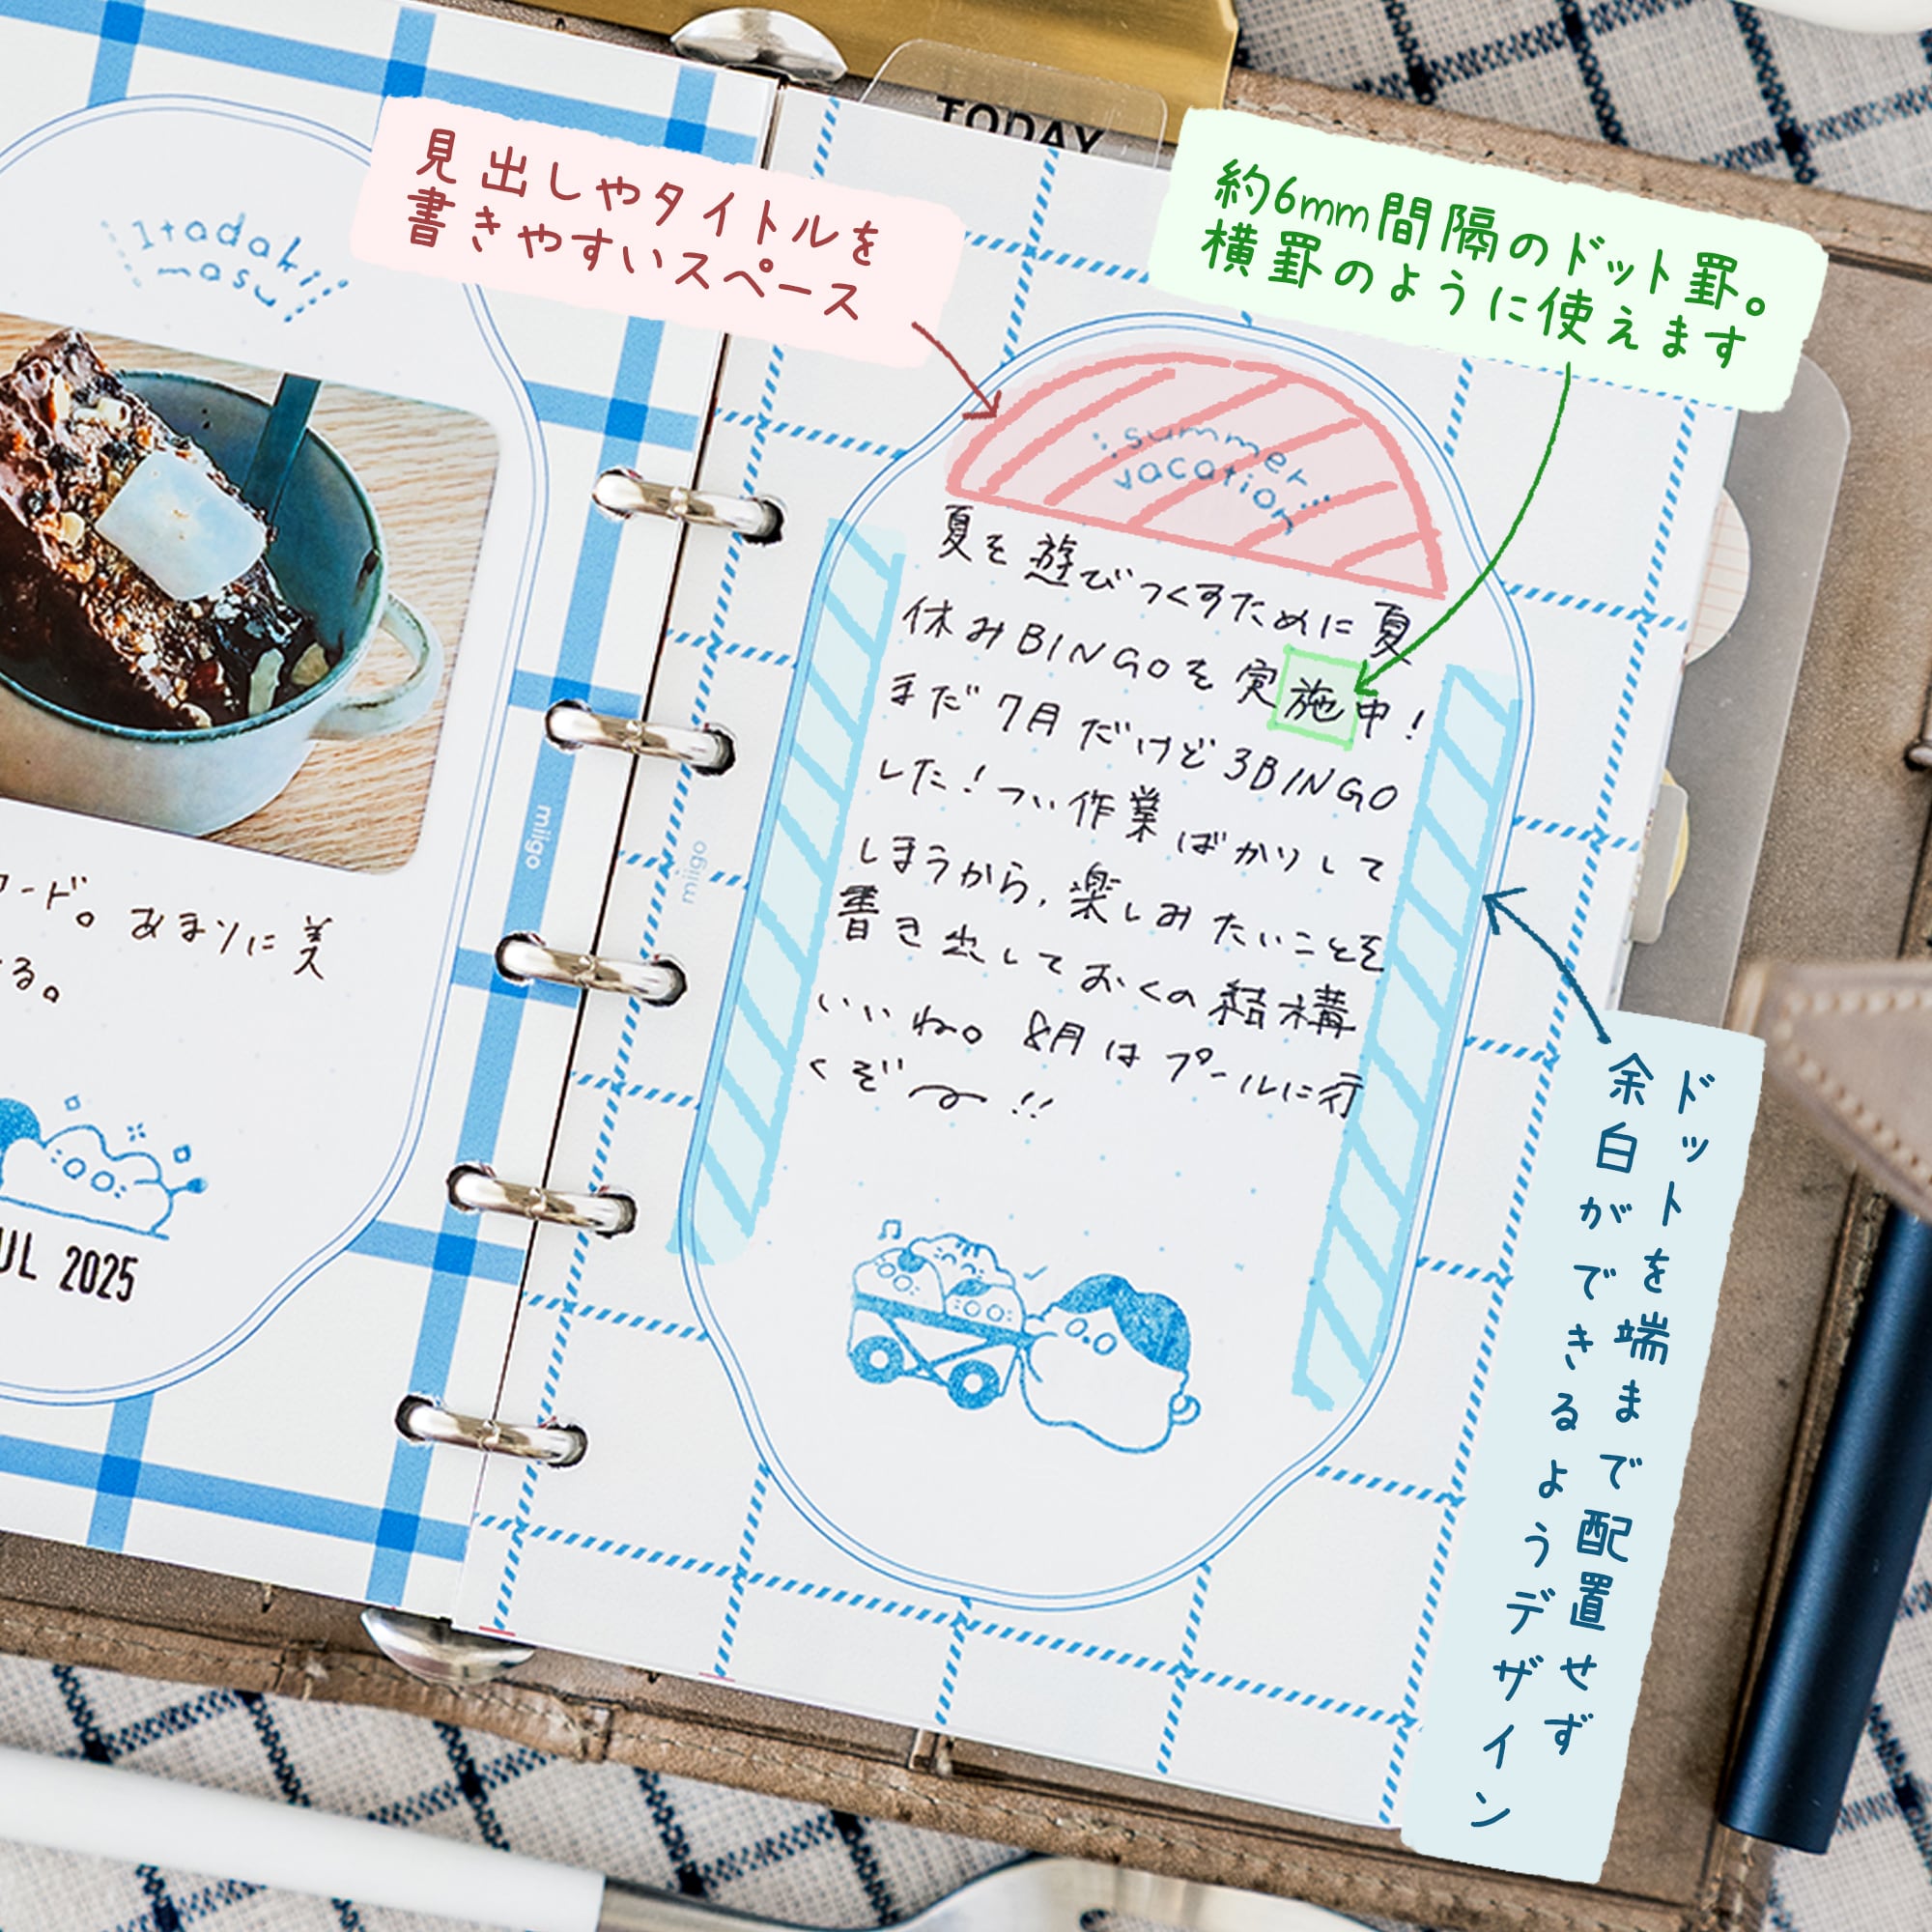 TODAY
見出しやタイトルを
書きやすいスペース
約6mm間隔のドット罫。
横罫のように使えます
Itadaki
masu
美
あまりに美
る。
UL 2025
miigo
miigo
summer
vacation
夏を遊びつくすために夏
休みBINGOを実施中!
まだ7月だけど3BINGO
した!つい作業ばかりして
しまうから,楽しみたいことを
書き出しておくの結構
いいね。8月はプールに行
くぞ〜!!
ドットを端まで配置せず
余白ができるようデザイン